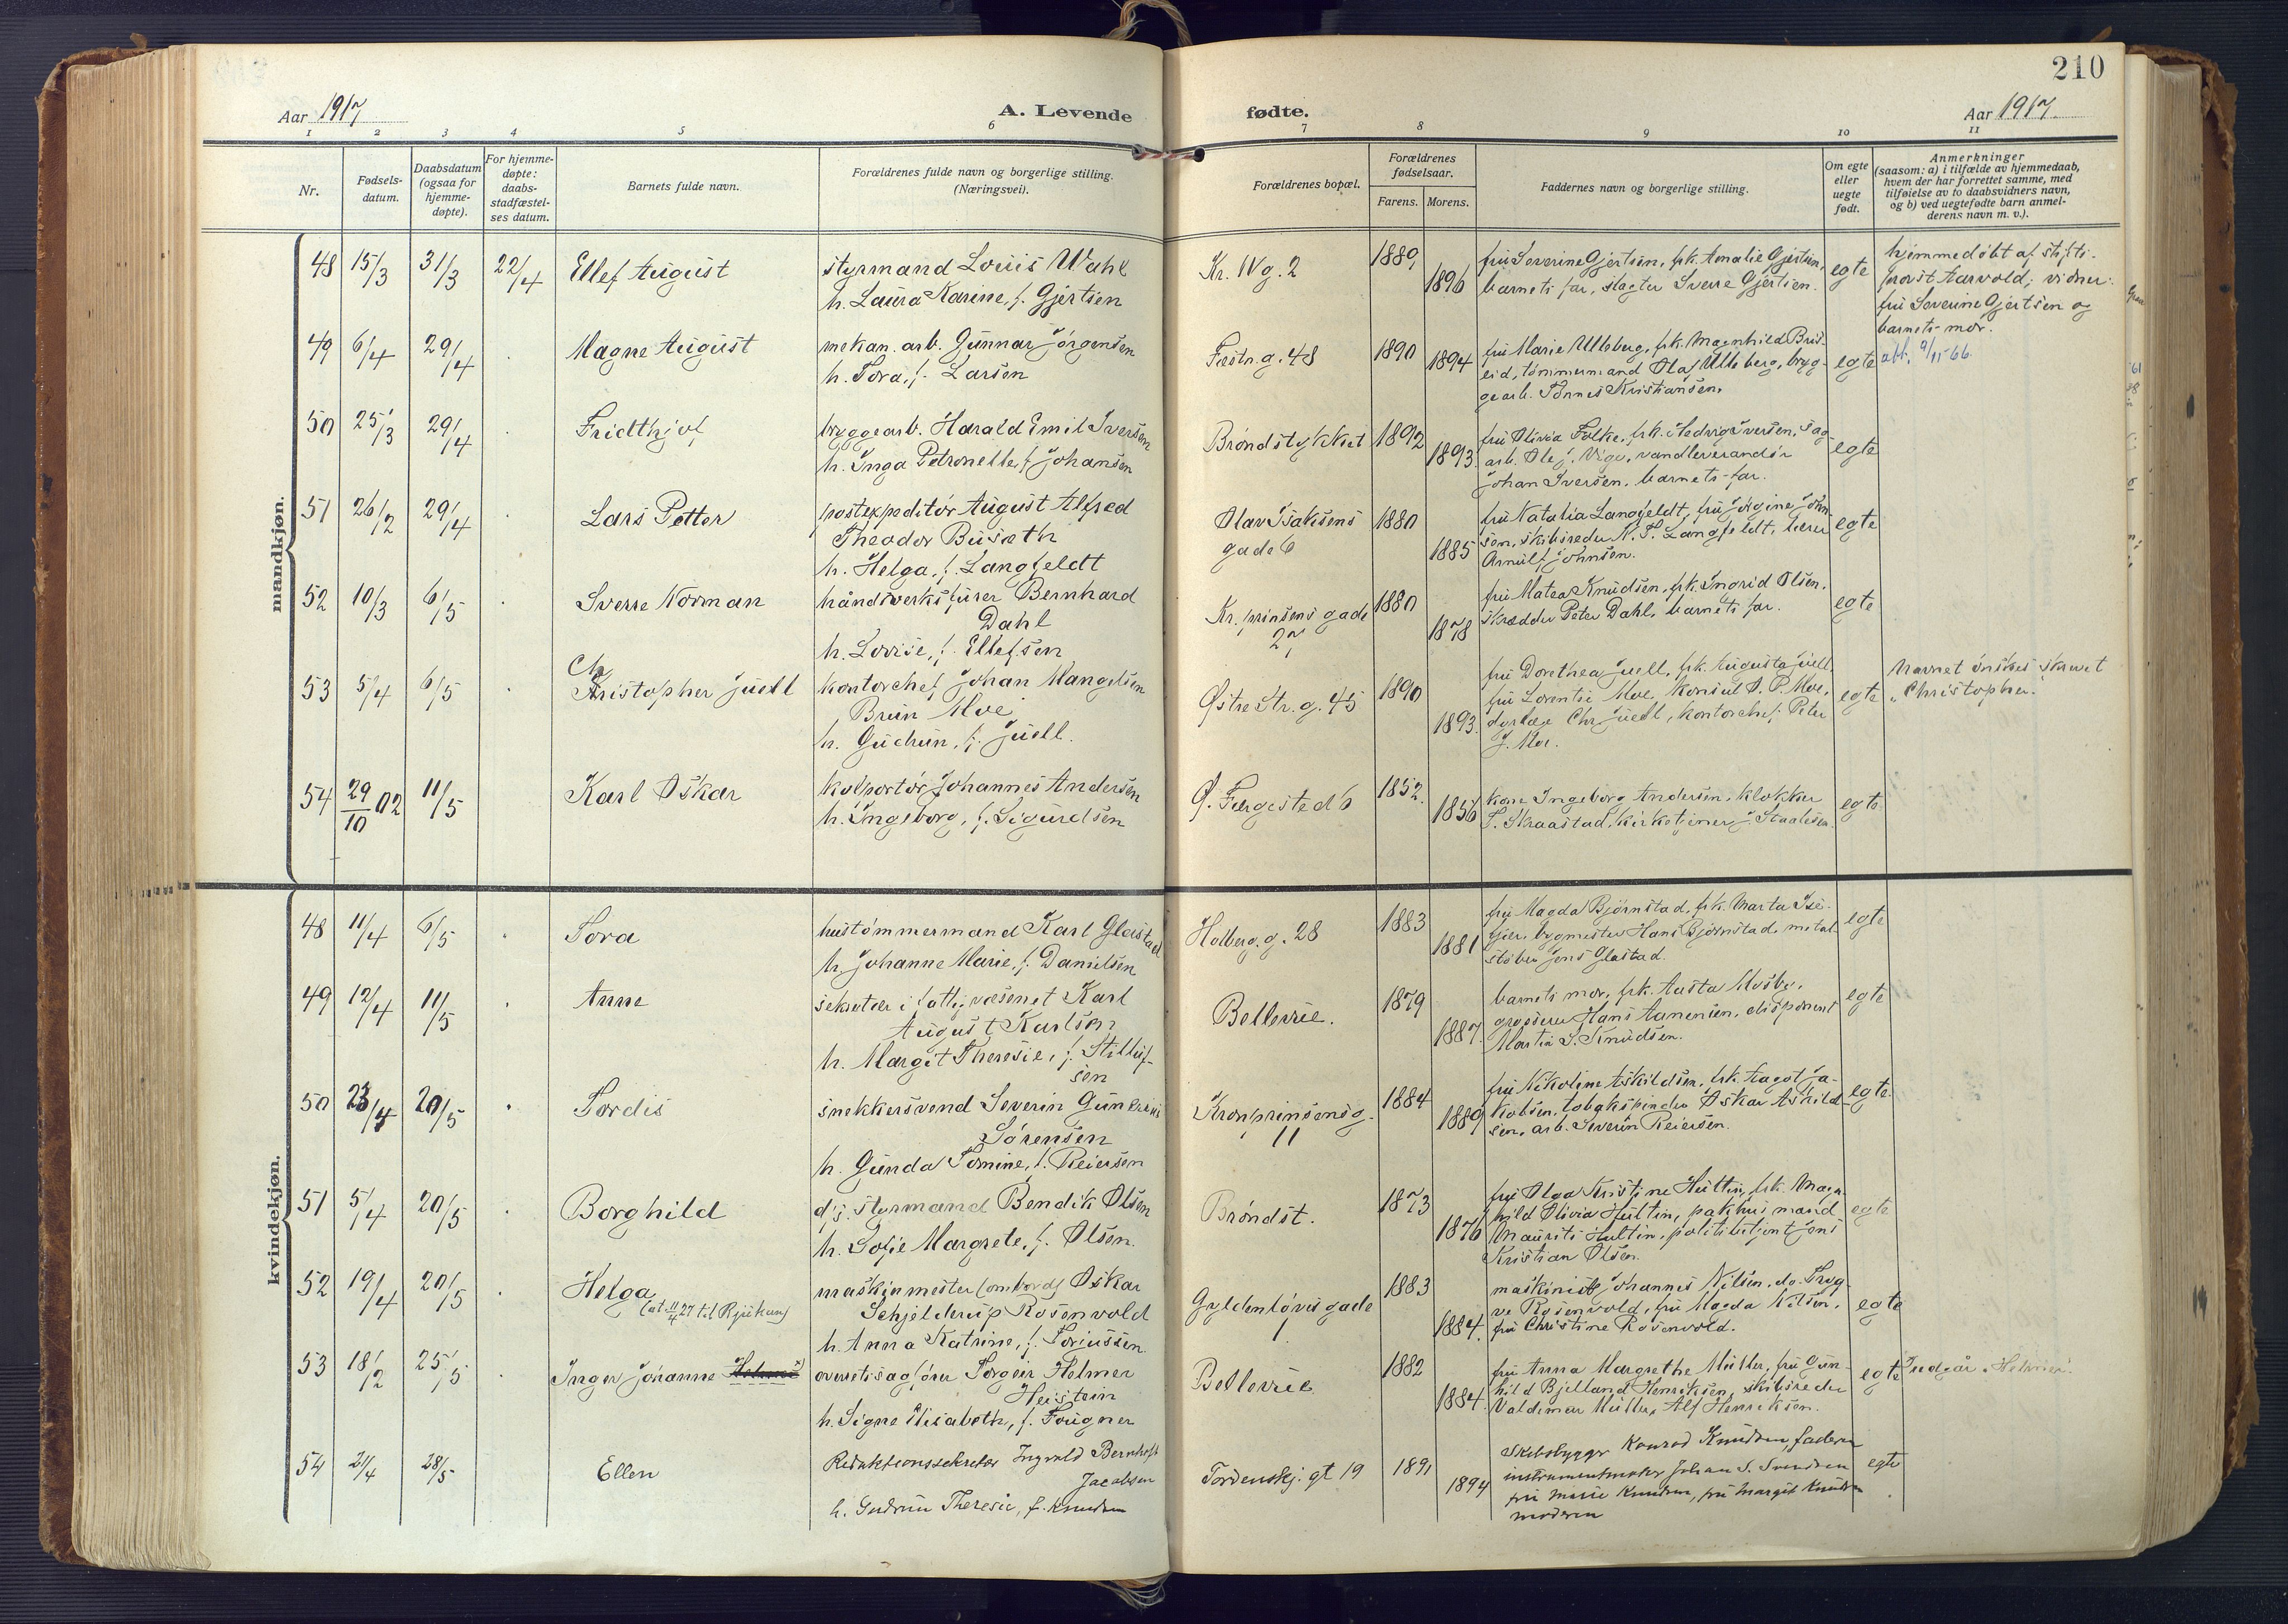 210
Aar 1917
A. Levende
fødte.
Aar 1917.
1 2 3 4 5 6 7 8 9 10 11
Nr.
Fødsels-
datum.
Daabsdatum
(ogsaa for
hjemme-
døpte).
For hjemme-
døpte:
daabs-
stadfæstel-
ses datum.
Barnets fulde navn.
Forældrenes fulde navn og borgerlige stilling.
(Næringsvei).
Forældrenes bopæl.
Forældrenes
fødselsaar.
Farens. Morens.
Faddernes navn og borgerlige stilling.
Om egte
eller
uegte
født.
Anmerkninger
(saasom: a) i tilfælde av hjemmedaab,
hvem der har forrettet samme, med
tilføielse av to daabsvidners navn,
og b) ved uegtefødte barn anmel-
derens navn m. v.).
mandkjøn.
48 15/3 31/3 22/4 Ellef August
styrmand Louis Wahl
h. Laura Karine, f. Gjertsen
Kr. IV g. 2
1889 1896
fru Severine Gjertsen, frk. Amalie Gjertsen,
barnets far, slagter Sverre Gjertsen.
egte
hjemmedøbt af stifts-
provst Aarvold; vidner:
fru Severine Gjertsen og
barnets mor.
49 6/4 29/4 Magne August
mekan. arb. Gunnar Jørgensen
h. Tora, f. Larsen
Festn. g. 48
1890 1894
fru Marie Ulleberg, frk. Magnhild Bris-
eid, tømmermand Olaf Ulleberg, bryg-
gearb. Tønnes Kristiansen.
egte
att. 9/11 66.
50 25/3 29/4 Fridtthjof
bryggearb. Harald Emil Iversen
h. Inga Petronelle, f. Johansen
Brøndstykket
1892 1893
fru Olivia Folke, frk. Hedvig Iversen, sag-
arb. Ole J. Vige, vandleverandør
Johan Iversen, barnets far.
egte
51 26/2 29/4 Lars Petter
postexpeditør August Alfred
Theodor Buseth
h. Helga, f. Langfeldt
Olav Isaksens
gade 6
1880 1885
fru Natalia Langfeldt, fru Jørgine John-
sen, skibsreder N. P. Langfeldt, lærer
Arnulf Johnsen.
egte
52 10/3 6/5 Sverre Norman
håndverksfører Bernhard
Dahl
h. Lovise, f. Ellefsen
Kr. prinsens gade
27
1880 1878
fru Matea Knudsen, frk. Ingrid Olsen,
skrædder Peter Dahl, barnets far.
egte
53 5/4 6/5 Ch
Kristopher Juell
kontorchef Johan Mangelsen
Brun Moe
h. Gudrun, f. Juell.
Østre Str. g. 45
1890 1893.
fru Dorethea Juell, frk. Augusta Juell,
fru Lorentse Moe, konsul O. P. Moe,
dyrlæge Chr Juell, kontorchef Peter
J. Moe.
egte
Navnet ønskes skrevet
"Christopher".
54 29/10 02 11/5 Karl Oskar
kolportør Johannes Andersen
h. Ingeborg, f. Sigurdsen
Ø. Færgested 6
1852. 1856
kone Ingeborg Andersen, klokker
T. Skraastad, kirketjener J. Staalesen.
egte
kvindekjøn.
48 11/4 6/5 Tora
hustømmermand Karl Glastad
h. Johanne Marie, f. Danielsen
Holberg. g. 28
1883 1881
fru Magda Bjørnstad, frk. Marta Ise-
gjer, bygmester Hans Bjørnstad, metal-
støber Jens Glastad.
egte
49 12/4 11/5 Anne
sekretær i fattigvæsenet Karl
August Karlsen
h. Margit Theresie, f. Stilluf-
sen
Bellevue.
1879 1887.
barnets mor, frk. Aasta Mosby,
grosserer Hans Aanensen, disponent
Martin S. Knudsen.
egte
50 23/4 20/5 Tordis
snekkersvend Severin
Sørensen
h. Gunda Tomine, f. Reiersen
Kronprinsensg.
11
1884 1889
fru Nikoline Askildsen, frk. Aagot Ja-
kobsen, tobakspinder Oskar Askild-
sen, arb. Severin Reiersen.
egte
51 5/4 20/5 Borghild
d/s. styrmand Bendik Olsen
h. Sofie Margrete, f. Olsen.
Brøndst.
1873 1876
fru Olga Kristine Hultin, frk. Magn-
hild Olivia Hultin, pakhusmand
Maurits Hultin, politibetjent Jens
Kristian Olsen.
egte
52 19/4 20/5 Helga
(at. 11/4 27 til Rjukan)
maskinmester (ombord) Oskar
Schjelderup Rosenvold
h. Anna Katrine, f. Torjussen
Gyldenløves gade
1
1883 1884.
maskinist Johannes Nilsen, do. Tryg-
ve Rosenvold, fru Magda Nilsen,
fru Christine Rosenvold.
egte
53 18/2 25/5 Inger Johanne Helmer
overretssagfører Torgeir Helmer
Heistein
h. Signe Elisabeth, f. Fougner
Bellevue
1882 1884.
fru Anna Margrethe Müller, fru Gun-
hild Bjelland Henriksen, skibsreder
Valdemar Müller, Alf Henriksen.
egte
Indgår "Helmer".
54 21/4 28/5 Ellen
Redaktionssekretær Ingvald Bernhoft
Jacobsen
h. Gudrun Theresie, f. Knudsen
Tordenskj. gt 19
1891 1894
Skibsbygger Konrad Knudsen, faderen
instrumentmaker Johan S. Svendsen
fru Marie Knudsen, fru Margit Knudsen
moderen
egte